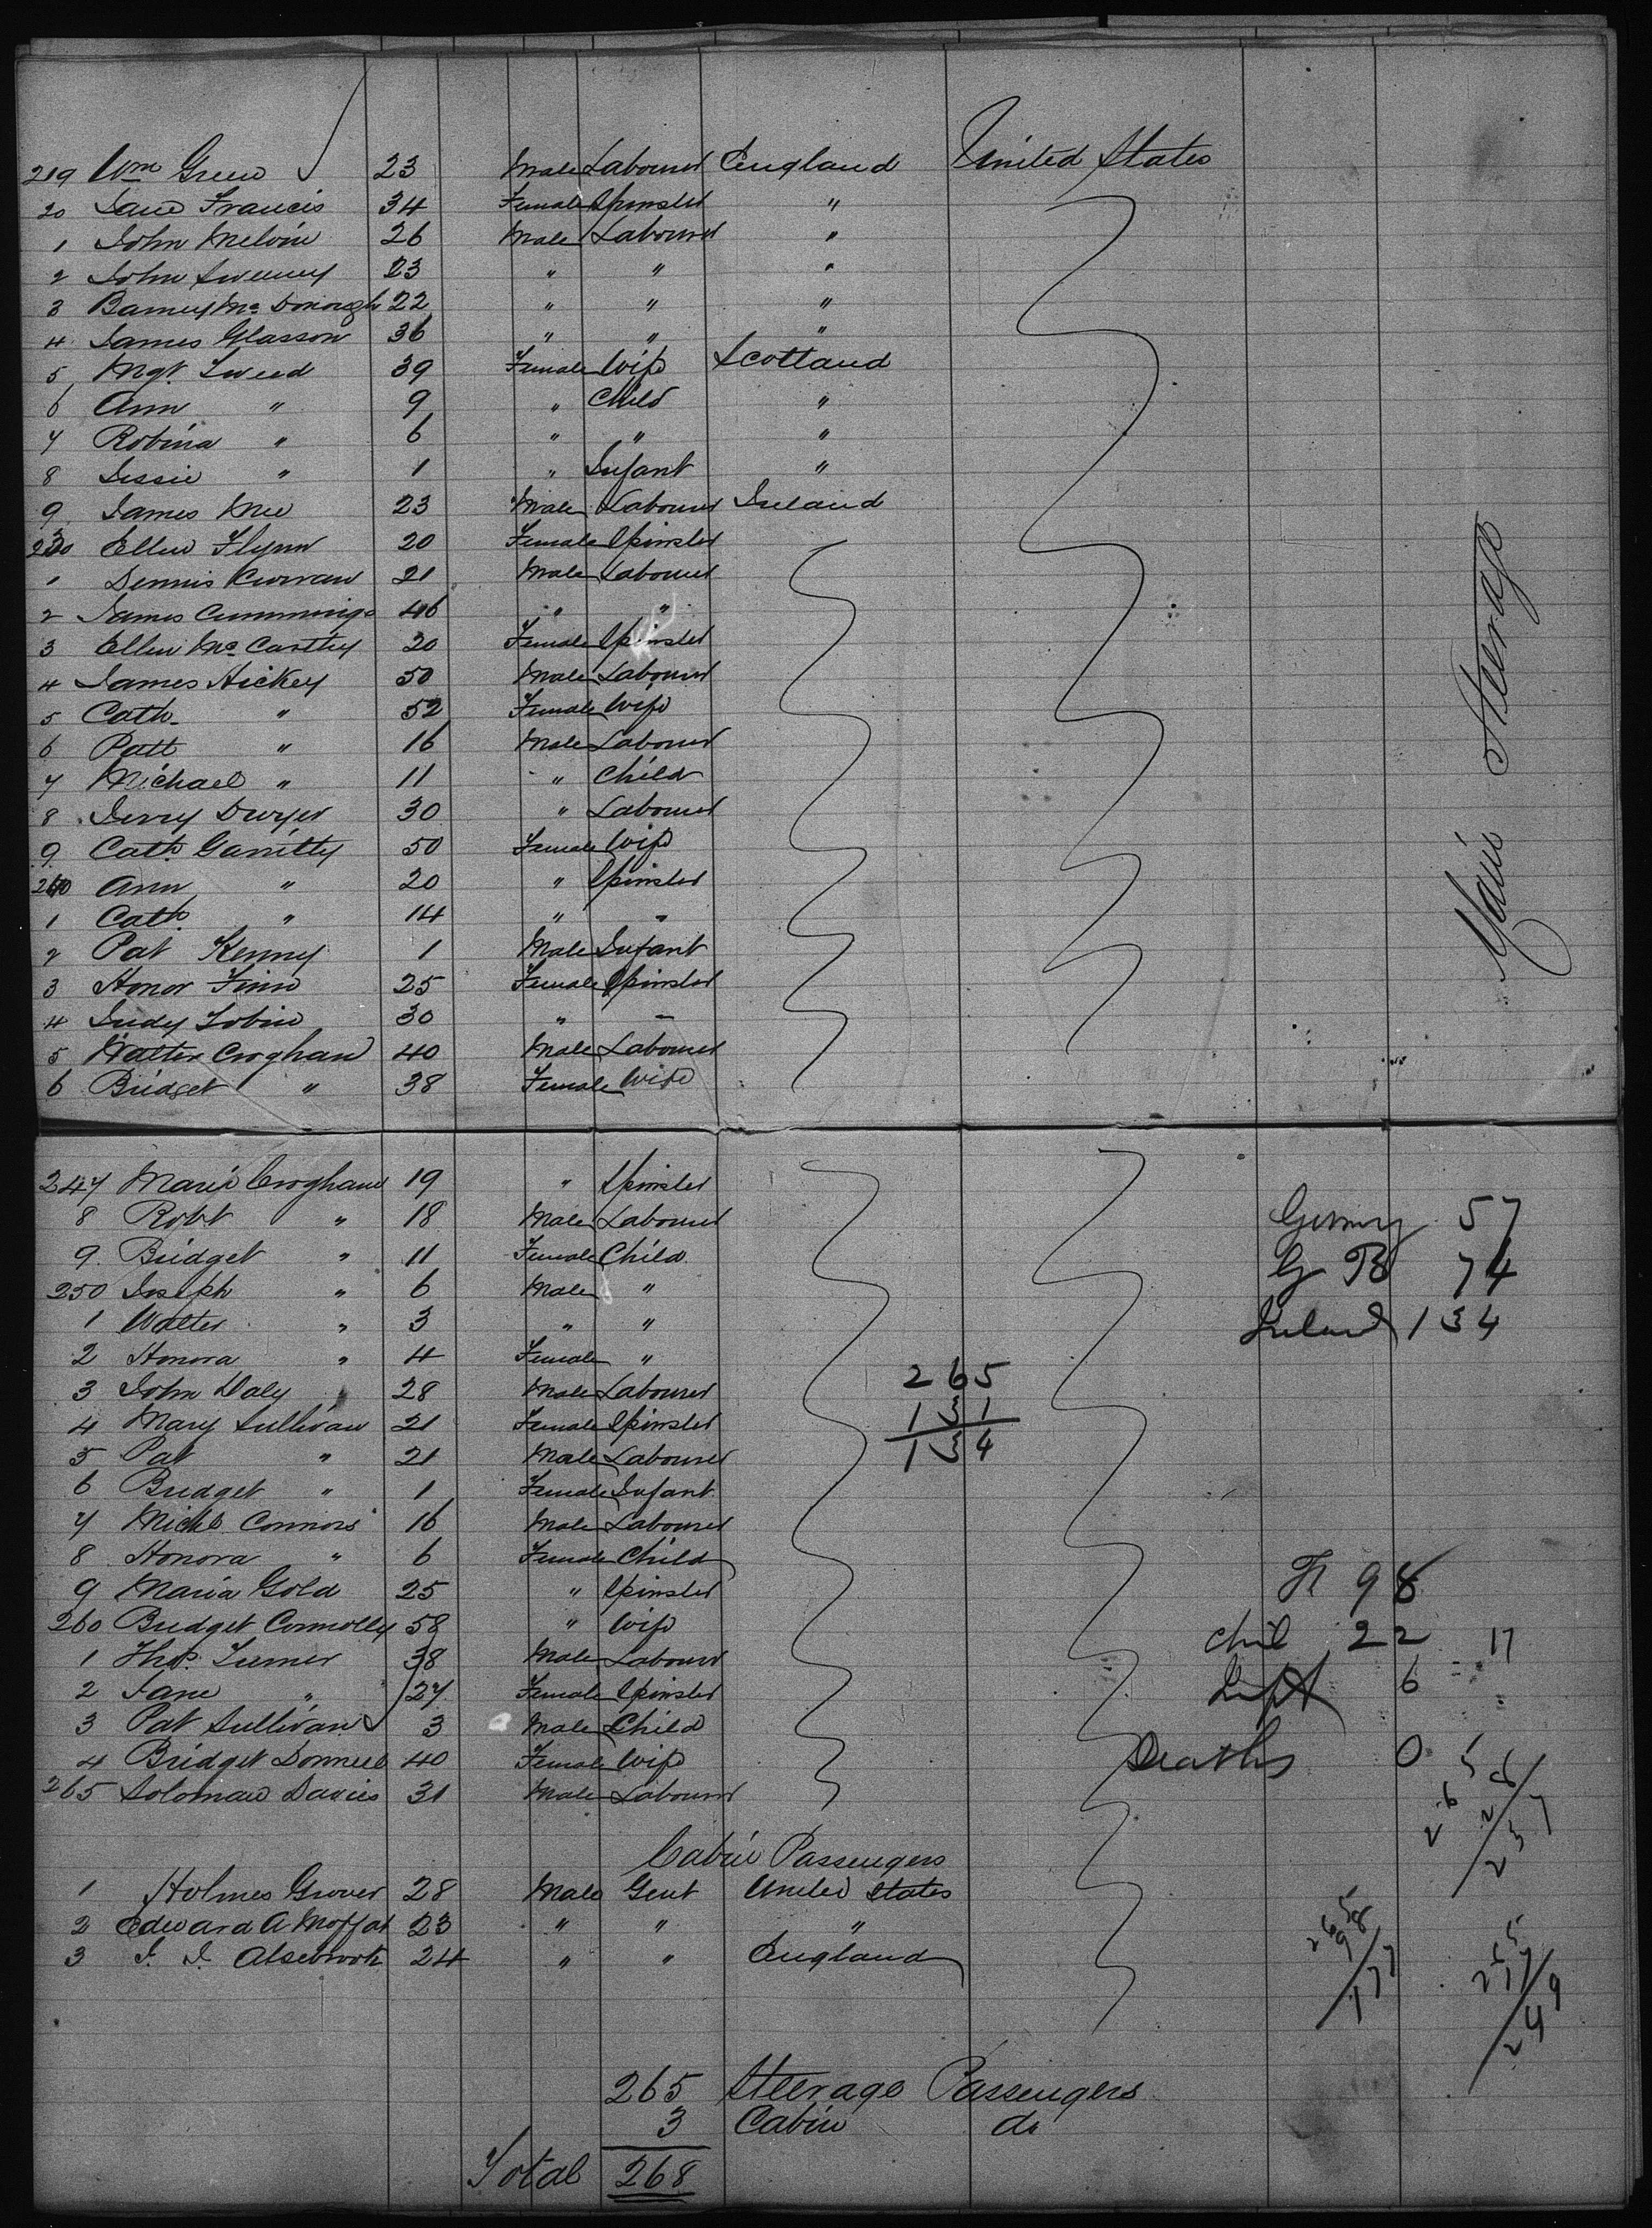 219 Wm Green 23 Male Labourer England United States
20 Jane Francis 34 Female Spinster "
1 John Melvin 26 Male Labourer "
2 John Sweeney 23 " " "
3 Barney Mc Donough 22 " " "
4 James Glasson 36 " " "
5 Mgt. Tweed 39 Female Wife Scotland
6 Ann " 9 " Child "
7 Robina " 6 " " "
8 Jessie " 1 " Infant "
9 James Mee 23 Male Labourer Ireland
230 Ellen Flynn 20 Female Spinster
1 Dennis Kirwan 21 Male Labourer
2 James Cummings 46 " "
3 Ellen Mc Carthy 20 Female Spinster
4 James Hickey 50 Male Labourer
5 Cath. " 52 Female Wife
6 Patt " 16 Male Labourer
7 Michael " 11 " Child
8 Jerry Dwyer 30 " Labourer
9 Cath Garritty 50 Female Wife
240 Ann " 20 " Spinster
1 Cath " 14 " "
2 Pat Kenny 1 Male Infant
3 Honor Finn 25 Female Spinster
4 Judy Tobin 30 " "
5 Walter Croghan 40 Male Labourer
6 Bridget " 38 Female Wife
Main Steerage
247 Maria Croghan 19 " Spinster
8 Robt " 18 Male Labourer Germy 57
9 Bridget " 11 Female Child G B 74
250 Joseph " 6 Male "
1 Walter " 3 " " Ireland 134
2 Honora " 4 Female "
265
3 John Daly 28 Male Labourer
131
4 Mary Sullivan 21 Female Spinster
134
5 Pat " 21 Male Labourer
6 Bridget " 1 Female Infant
7 Michl Connors 16 Male Labourer
8 Honora " 6 Female Child
9 Maria Gold 25 " Spinster F 98
260 Bridget Connolly 58 " Wife Chil 22 17
1 Thos. Turner 38 Male Labourer
2 Jane " 27 Female Spinster Inft 6
3 Pat Sullivan 3 Male Child
4 Bridget Donnell 40 Female Wife Deaths 0
265 Soloman Davies 31 Male Labourer
265
28
237
Cabin Passengers
1 Holmes Grover 28 Male Gent United States
2 Edward A Moffat 23 " " "
3 J. J. Alsebrook 24 " " England
265
98
177
249
265 Steerage Passengers
3 Cabin do
Total 268